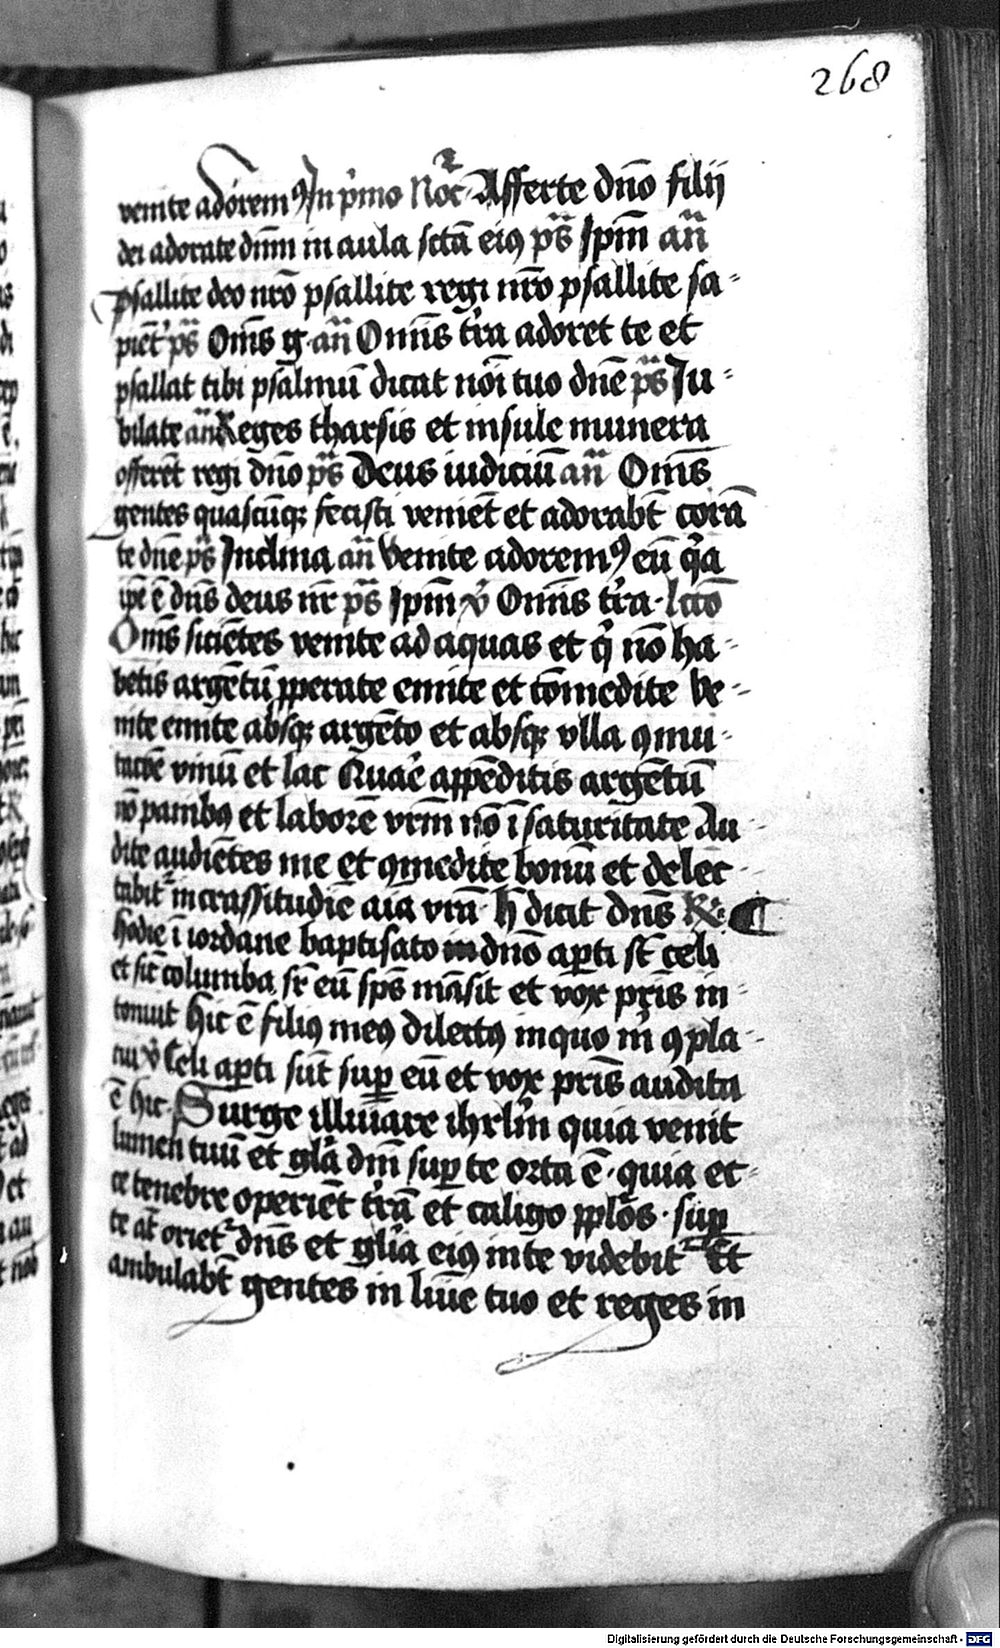 268
venite adorem⁹ In p̄mo Noc̄t Afferte dn̄o filij
dei adorate dn̄m in aula sctā ei⁹ p̄s Ip̄m an̄
psallite deo nr̄o psallite regi nr̄o psallite sa-
piēt p̄s Om̄s g. an̄ Omn̄s tr̄a adoret te et
psallat tibi psalmū dicat nōi tuo dn̄e p̄s Iu-
bilate an̄ Reges tharsis et insule munera
offerēt regi dn̄o p̄s Deus iudiciū an̄ Om̄s
gentes quascūq; fecisti veniēt et adorabt̄ corā
te dn̄e p̄s Inclina an̄ Venite adorem⁹ eū q̄a
ip̄e ē dn̄s deus nr̄ p̄s Ip̄m v̄ Omn̄s tr̄a. Lcīo
Om̄s siciētes venite ad aquas et q̄ nō ha-
betis argētū ꝓperate emite et cōmedite Ve-
nite emite absq; argēto et absq; vlla ꝯmu-
tacōe vinū et lac Quar̄ appēditis argētū
nō panib⁹ et laborē vr̄m nō ī saturitate Au-
dite audiētes me et ꝯmedite bonū et delec-
tabit̄ in crassitudīe aīa vr̄a h̄ dicit dn̄s R̄
hodie ī iordane baptisato dn̄o ap̄ti st̄ celi
et sic̄ columba sr̄ eū sp̄s māsit et vox pr̄is in-
tonuit Hic ē fili⁹ me⁹ dilect⁹ in quo m̄ ꝯpla-
cui v̄ Celi ap̄ti sūt sup̄ eū et vox pr̄is audita
ē hic. Surge illūiare ihrl̄m quia venit
lumen tuū et gl̄a dn̄i sup̄ te orta ē. quia ec-
ce tenebre operiēt tr̄ā et caligo ppl̄os. sup̄
te at̄ oriet̄ dn̄s et gl̄ia ei⁹ in te videbit̄ Et
ambulabt̄ gentes in lūīe tuo et reges in
Digitalisierung gefördert durch die Deutsche Forschungsgemeinschaft - DFG